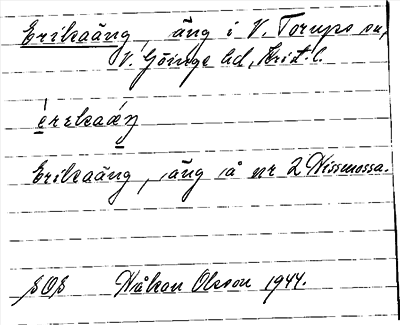 Erikaäng, äng i V. Torups sn,
V. Göinge hd, Krist. l.
érekaäŋ
Erikaäng, äng å nr 2 Nissmossa.
SOS Håkan Olsson 1944.